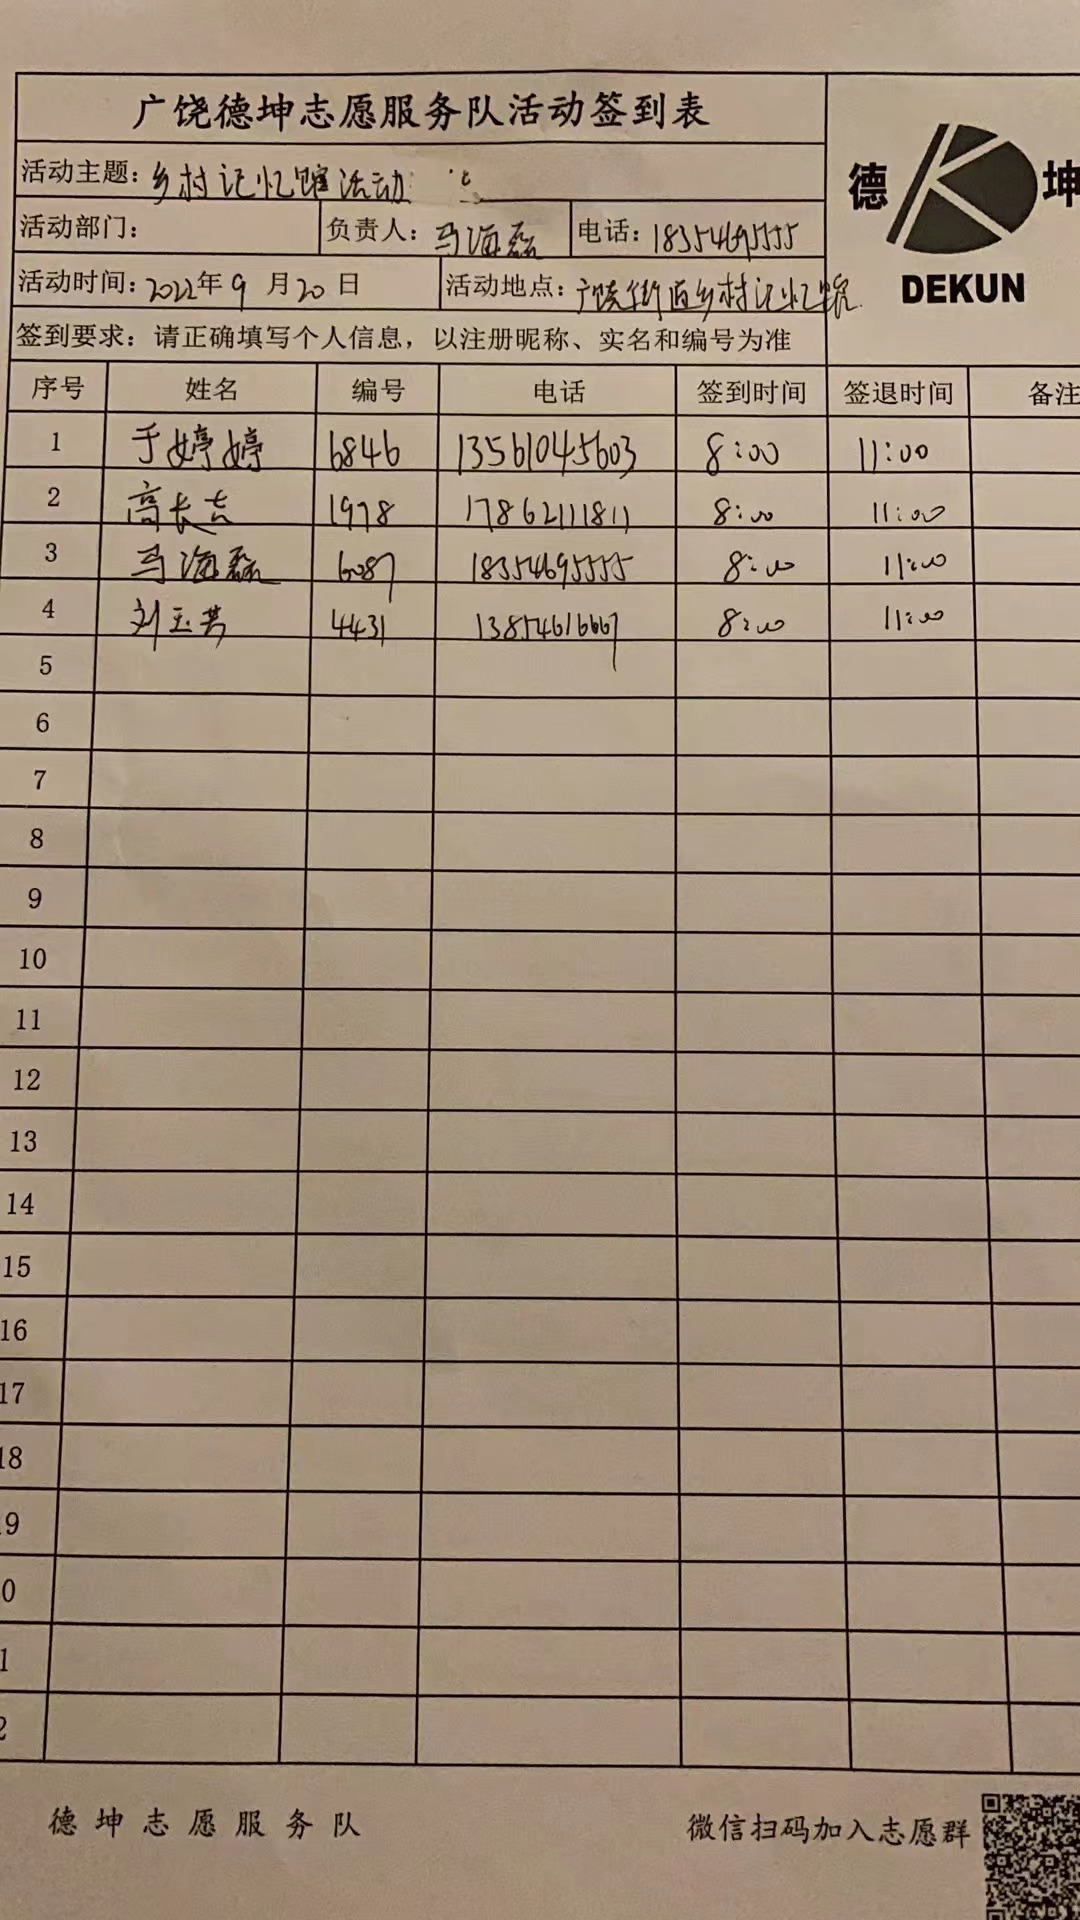 广饶德坤志愿服务队活动签到表
德 坤
DEKUN
活动主题：乡村记忆馆活动
活动部门： 负责人：马海磊 电话：18354695555
活动时间：2022年9月20日 活动地点：广饶街道乡村记忆馆
签到要求：请正确填写个人信息，以注册昵称、实名和编号为准
序号 姓名 编号 电话 签到时间 签退时间 备注
1 于婷婷 6846 13561045603 8:00 11:00
2 高长吉 1978 17862111811 8:00 11:00
3 马海磊 6087 18354695555 8:00 11:00
4 刘玉芳 4431 13854616667 8:00 11:00
5
6
7
8
9
10
11
12
13
14
15
16
17
18
9
0
1
2
德坤志愿服务队 微信扫码加入志愿群